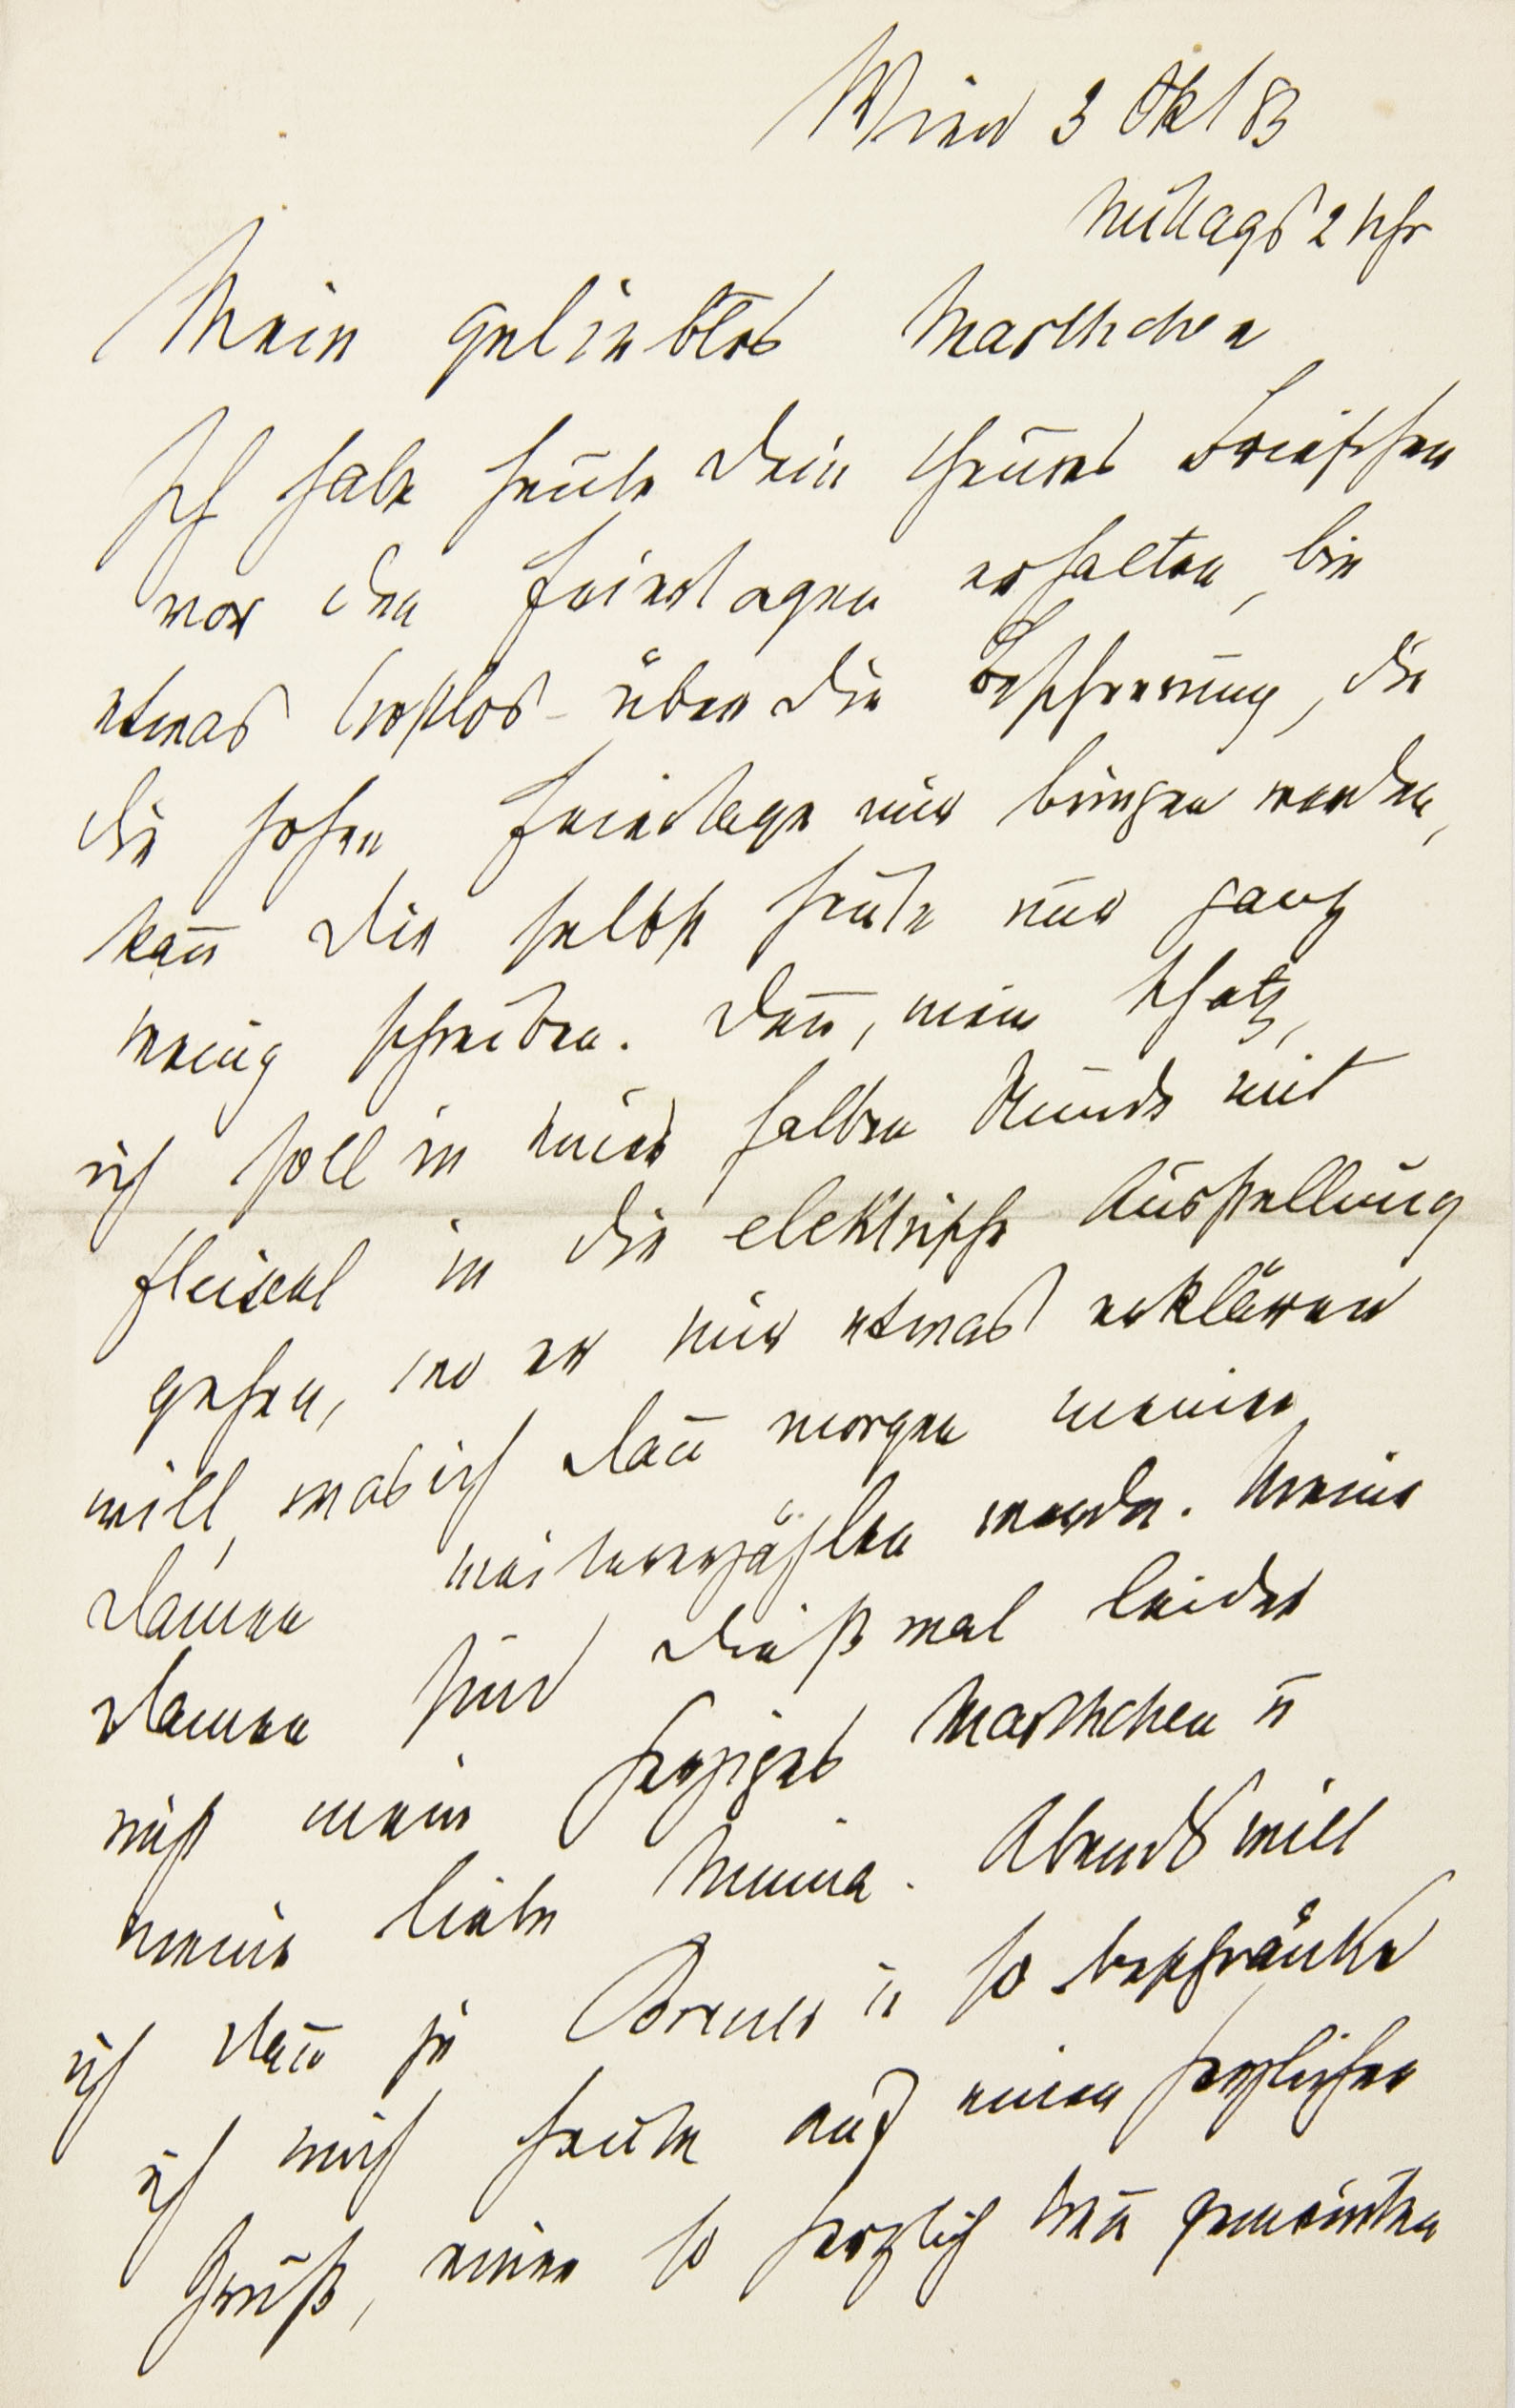 Wien 3 Okt 83
Mittags 2 Uhr
Mein geliebtes Marthchen
Ich habe heute Dein theures Briefchen
vor den Feiertagen erhalten, bin
etwas trostlos über die Bescherung, die
die hohen Feiertage mir bringen werden,
kann Dir selbst heute nur ganz
wenig schreiben. Denn, mein Schatz,
ich soll in einer halben Stunde mit
Fleischl in die elektrische Ausstellung
gehen, wo er mir etwas erklären
will, was ich dann morgen meinen
Damen weitererzählen werde. Meine
Damen sind dießmal leider
nicht mein herziges Marthchen u
meine liebe Minna. Abends will
ich dann zu Breuer u so beschränke
ich mich heute auf einen herzlichen
Gruß, einen so herzlich treu gemeinten